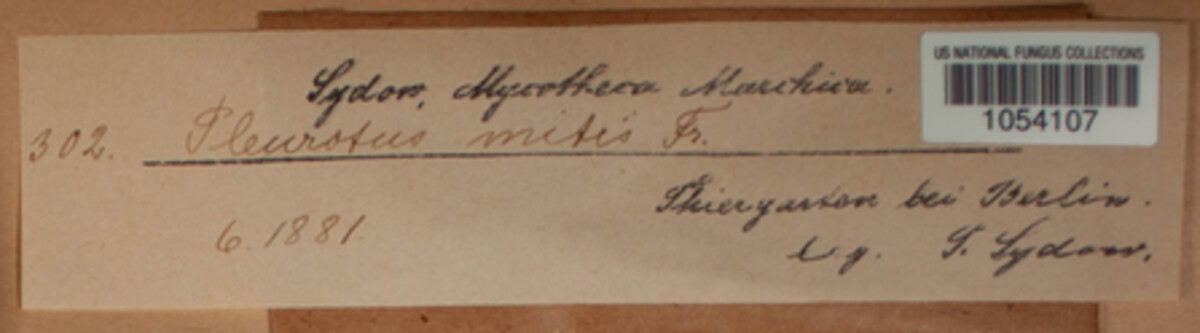 Sydow, Mycotheca Marchica.
302. Pleurotus mitis Fr.
Thiergarten bei Berlin.
6. 1881.
lg. P. Sydow.
US NATIONAL FUNGUS COLLECTIONS
1054107